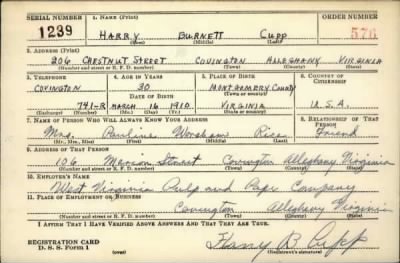 SERIAL NUMBER 1. NAME (Print) ORDER NUMBER
1239 HARRY BURNETT CUPP 576
(First) (Middle) (Last)
2. ADDRESS (Print)
206 CHESTNUT STREET COVINGTON ALLEGHANY VIRGINIA
(Number and street or R. F. D. number) (Town) (County) (State)
3. TELEPHONE 4. AGE IN YEARS 5. PLACE OF BIRTH 6. COUNTRY OF CITIZENSHIP
COVINGTON 30 MONTGOMERY COUNTY
DATE OF BIRTH (Town or county)
741-R MARCH 16 1910 VIRGINIA U.S.A.
(Exchange) (Number) (Mo.) (Day) (Yr.) (State or country)
7. NAME OF PERSON WHO WILL ALWAYS KNOW YOUR ADDRESS 8. RELATIONSHIP OF THAT PERSON
Mrs. Pauline Worsham Rice Friend
(Mr., Mrs., Miss) (First) (Middle) (Last)
9. ADDRESS OF THAT PERSON
106 Street Covington Alleghany Virginia
(Number and street or R. F. D. number) (Town) (County) (State)
10. EMPLOYER'S NAME
West Virginia Pulp and Paper Company
11. PLACE OF EMPLOYMENT OR BUSINESS
Covington Alleghany Virginia
(Number and street or R. F. D. number) (Town) (County) (State)
I AFFIRM THAT I HAVE VERIFIED ABOVE ANSWERS AND THAT THEY ARE TRUE.
REGISTRATION CARD
D. S. S. Form 1 (over) Harry B Cupp
(Registrant's signature)